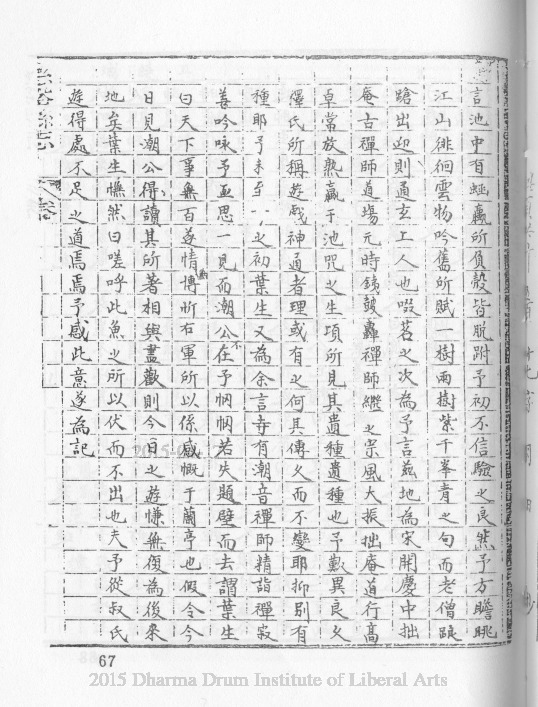 言池中有螄蠃所負殼皆脫跗予初不信驗之良然予方瞻眺
江山徘徊雲物吟舊所賦一樹兩樹紫千峯青之句而老僧踉
蹌出迎則通玄工人也啜茗之次為予言茲地為宋開慶中拙
庵古禪師道場元時銕鼓轟禪師繼之宗風大振拙庵道行高
卓常放熟蠃于池咒之生頃所見其遺種遺種也予歎異良久
僊氏所稱遊戲神通者理或有之何其傳久而不變耶抑別有
種耶予未至之初葉生又為余言寺有潮音禪師精詣禪寂
善吟咏予亟思一見而潮公不在予惘惘若失題壁而去謂葉生
曰天下事無百遂情博昕右軍所以係感慨于蘭亭也假令今
日見潮公得讀其所著相與盡歡則今日之遊慊無復為後來
地矣葉生憮然曰嗟呼此魚之所以伏而不出也夫予從叔氏
遊得處不足之道焉焉予感此意遂為記
67
2015 Dharma Drum Institute of Liberal Arts